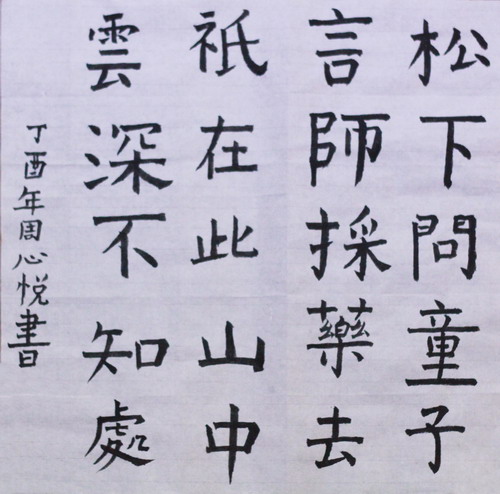 松下問童子
言師採藥去
祇在此山中
雲深不知處
丁酉年周心悦書